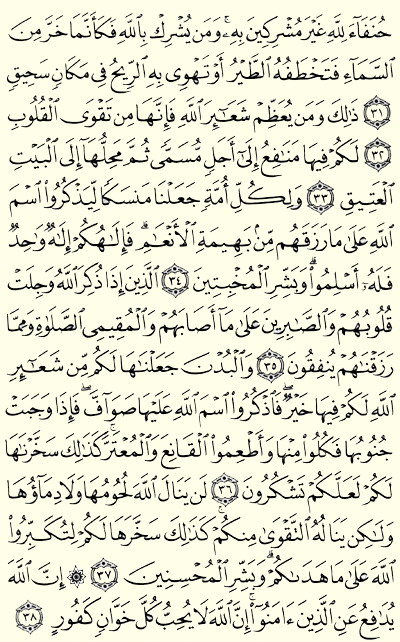 حُنَفَآءَ لِلَّهِ غَيْرَ مُشْرِكِينَ بِهِۦۚ وَمَن يُشْرِكْ بِٱللَّهِ فَكَأَنَّمَا خَرَّ مِنَ
ٱلسَّمَآءِ فَتَخْطَفُهُ ٱلطَّيْرُ أَوْ تَهْوِى بِهِ ٱلرِّيحُ فِى مَكَانٍ سَحِيقٍ
٣١ ذَٰلِكَ وَمَن يُعَظِّمْ شَعَـٰٓئِرَ ٱللَّهِ فَإِنَّهَا مِن تَقْوَى ٱلْقُلُوبِ
٣٢ لَكُمْ فِيهَا مَنَـٰفِعُ إِلَىٰٓ أَجَلٍ مُّسَمًّى ثُمَّ مَحِلُّهَآ إِلَى ٱلْبَيْتِ
ٱلْعَتِيقِ ٣٣ وَلِكُلِّ أُمَّةٍ جَعَلْنَا مَنسَكًا لِّيَذْكُرُوا۟ ٱسْمَ
ٱللَّهِ عَلَىٰ مَا رَزَقَهُم مِّنۢ بَهِيمَةِ ٱلْأَنْعَـٰمِۗ فَإِلَـٰهُكُمْ إِلَـٰهٌ وَٰحِدٌ
فَلَهُۥٓ أَسْلِمُوا۟ۗ وَبَشِّرِ ٱلْمُخْبِتِينَ ٣٤ ٱلَّذِينَ إِذَا ذُكِرَ ٱللَّهُ وَجِلَتْ
قُلُوبُهُمْ وَٱلصَّـٰبِرِينَ عَلَىٰ مَآ أَصَابَهُمْ وَٱلْمُقِيمِى ٱلصَّلَوٰةِ وَمِمَّا
رَزَقْنَـٰهُمْ يُنفِقُونَ ٣٥ وَٱلْبُدْنَ جَعَلْنَـٰهَا لَكُم مِّن شَعَـٰٓئِرِ
ٱللَّهِ لَكُمْ فِيهَا خَيْرٌۖ فَٱذْكُرُوا۟ ٱسْمَ ٱللَّهِ عَلَيْهَا صَوَآفَّۖ فَإِذَا وَجَبَتْ
جُنُوبُهَا فَكُلُوا۟ مِنْهَا وَأَطْعِمُوا۟ ٱلْقَانِعَ وَٱلْمُعْتَرَّۚ كَذَٰلِكَ سَخَّرْنَـٰهَا
لَكُمْ لَعَلَّكُمْ تَشْكُرُونَ ٣٦ لَن يَنَالَ ٱللَّهَ لُحُومُهَا وَلَا دِمَآؤُهَا
وَلَـٰكِن يَنَالُهُ ٱلتَّقْوَىٰ مِنكُمْۚ كَذَٰلِكَ سَخَّرَهَا لَكُمْ لِتُكَبِّرُوا۟
ٱللَّهَ عَلَىٰ مَا هَدَىٰكُمْۗ وَبَشِّرِ ٱلْمُحْسِنِينَ ٣٧ ۞ إِنَّ ٱللَّهَ
يُدَٰفِعُ عَنِ ٱلَّذِينَ ءَامَنُوٓا۟ۗ إِنَّ ٱللَّهَ لَا يُحِبُّ كُلَّ خَوَّانٍ كَفُورٍ ٣٨